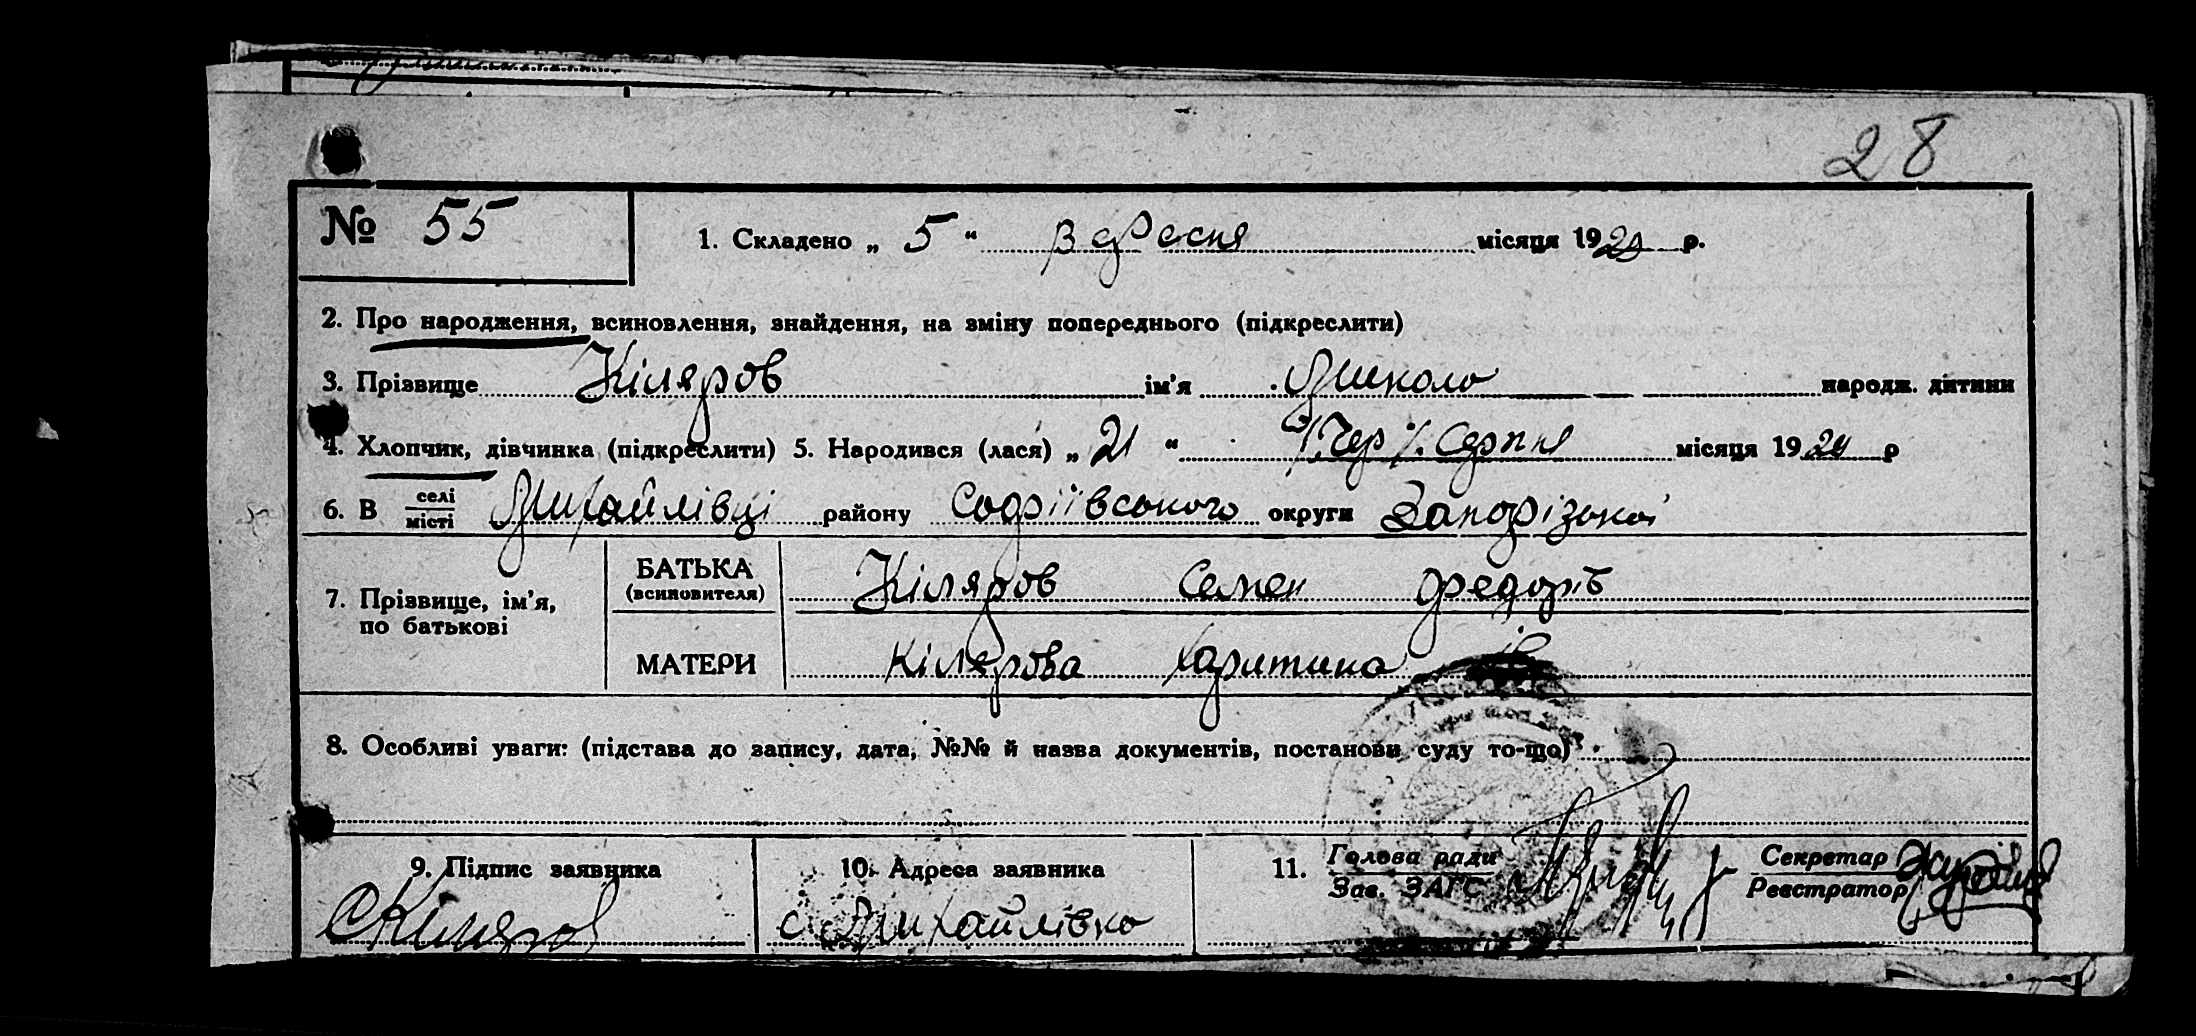 28
№ 55
1. Складено „ 5 “ вересня місяця 192 р.
2. Про народження, всиновлення, знайдення, на зміну попереднього (підкреслити)
3. Прізвище Кіляров ім'я Микола народж. дитини
4. Хлопчик, дівчинка (підкреслити) 5. Народився (лася) „ 21 “ Серпня місяця 192 р
6. В селі місті Михайлівці району Софіївського округи Запорізької
7. Прізвище, ім'я, по батькові
БАТЬКА (всиновителя) Кіляров Семен Федорів
МАТЕРИ Кілярова Харитина
8. Особливі уваги: (підстава до запису, дата, №№ й назва документів, постанови суду то-що)
9. Підпис заявника 10. Адреса заявника 11. Голова ради Зав. ЗАГС Секретар Реєстратор
СКіляров с. Михайлівка